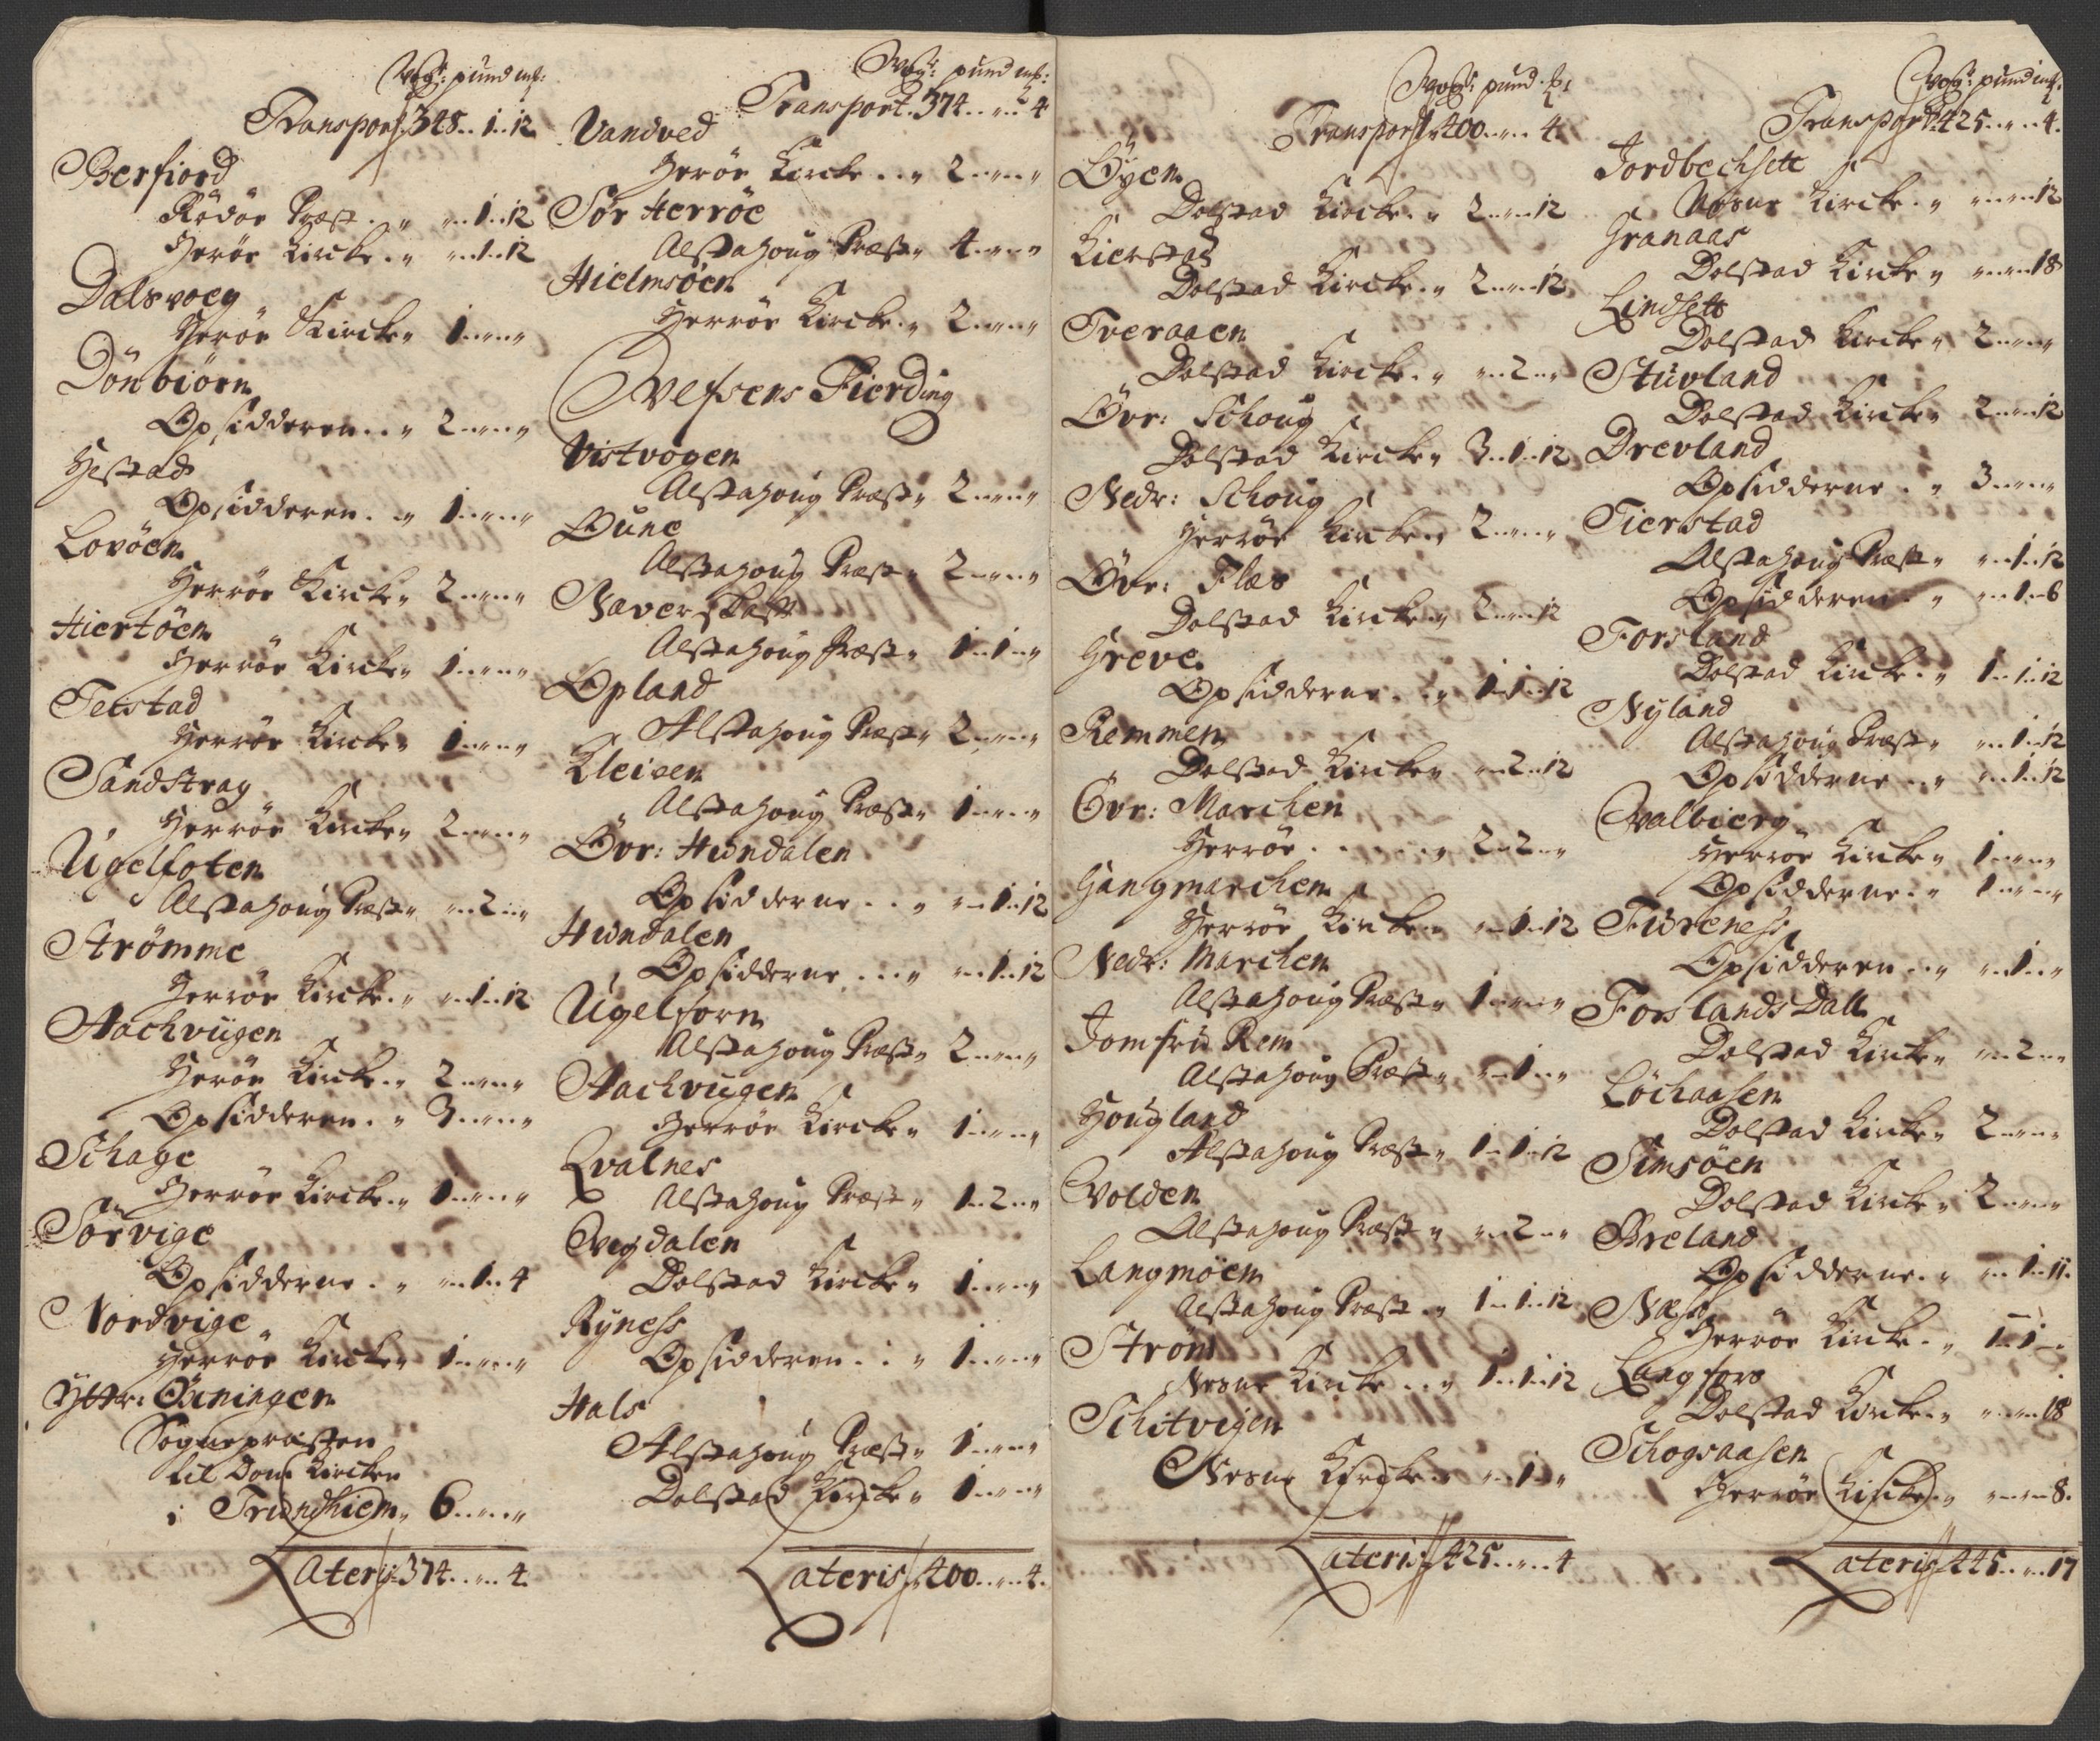 Wog: pund mk:
Transport 348.. 1.. 12
Berfiord
Rödöe Præst . „ „.. 1.. 12
Heröe Kircke . „ „.. 1.. 12
Dalsvoeg
Heröe Kircke „ 1..„..„
Dönbiörn
Opsidderen .. „ 2..„..„
Hestad
Opsidderen . „ 1..„..„
Lovöen
Herröe Kircke „ 2..„..„
Hiertöen
Herröe Kircke „ 1..„..„
Teistad
Herröe Kircke „ 1..„..„
Sandstrag
Herröe Kircke „ 2..„..„
Ugelfoten
Alstahoug Præst „ „.. 2..„
Strömme
Herröe Kircke . „ „.. 1.. 12
Aachviigen
Heröe Kircke . „ 2..„..„
Opsidderen . „ 3..„..„
Schage
Herröe Kircke . „ 1..„..„
Sörvige
Opsidderne . „ „.. 1.. 4
Nordvige
Herröe Kircke „ 1..„..„
Yttr: Öxningen
Sognepræsten
til Dom Kircken
i Trundhiem „ 6..„..„
Lateris 374..„.. 4.
Wog: pund mk:
Transport. 374..„.. 4
Vandved
Heröe Kircke .. „ 2..„..„
Sör Herröe
Alstahoug Præst „ 4..„..„
Hielmsöen
Herröe Kircke . „ 2..„..„
Wefsens Fierding
Vistvogen
Alstahoug Præst „ 2..„..„
Oune
Alstahoug Præst „ 2..„..„
Naverskatt
Alstahoug Præst „ 1.. 1..„
Opland
Alstahoug Præst „ 2..„..„
Kleiven
Alstahoug Præst „ 1..„..„
Övr: Hundalen
Opsidderne .. „ „.. 1.. 12
Hundalen
Opsidderne ... „ „.. 1.. 12
Ugelforn
Alstahoug Præst „ 2..„..„
Aachvugen
Herröe Kircke „ 1..„..„
Qvalnes
Alstahoug Præst „ 1.. 2..„
Wegdalen
Dolstad Kircke „ 1..„..„
Ryness
Opsidderen . . „ 1..„..„
Hals
Alstahoug Præst „ 1..„..„
Dolstad Kircke „ 1..„..„
Lateris 400..„.. 4.
Wog: pund
Transport 400..„.. 4.
Öyen
Dolstad Kircke . „ 2..„.. 12
Kierstad
Dolstad Kircke . „ 2..„.. 12
Tveraaen
Dolstad Kircke . „ „.. 2..„
Övr: Schoug
Dolstad Kircke „ 3.. 1.. 12
Nedr: Schoug
Herröe Kircke „ 2..„..„
Övr: Flæs
Dolstad Kircke „ 2..„.. 12
Greve
Opsidderne . . „ 1.. 1.. 12
Remmen
Dolstad Kircke „ „.. 2.. 12
Övr: Marchen
Herröe . . . . . „ 2.. 2..„
Gangmarchen
Herröe Kircke „ „.. 1.. 12
Nedr: Marchen
Alstahoug Præst „ 1..„..„
Jomfru Rem
Alstahoug Præst „ „.. 1..„
Hougland
Alstahoug Præst „ 1.. 1.. 12
Volden
Alstahoug Præst „ „.. 2..„
Langmöen
Alstahoug Præst . „ 1.. 1.. 12
Ström
Nesne Kircke .. „ 1.. 1.. 12
Schitvigen
Nesne Kircke „ „.. 1..„
Lateris 425..„.. 4
Wog: pund mk:
Transport 425..„.. 4.
Jordbechsett
Nesne Kircke . „ „..„.. 12
Granaas
Dolstad Kircke „ „..„.. 18
Lindsett
Dolstad Kircke „ 2..„..„
Stuvland
Dolstad Kircke „ 2..„.. 12
Drevland
Opsidderne . „ 3..„..„
Tierstad
Alstahoug Præst „ „.. 1.. 12
Opsidderen . „ „.. 1.. 6
Forsland
Dolstad Kircke . „ 1.. 1.. 12
Nyland
Alstahoug Præst „ „.. 1.. 12
Opsidderne .. „ „.. 1.. 12
Valbierg
Herröe Kircke „ 1..„..„
Opsidderne . „ 1..„..„
Fureness
Opsidderen .. „ „.. 1..„
Forslands Dall
Dolstad Kircke „ „.. 2..„
Löchaasen
Dolstad Kircke „ 2..„..„
Simsöen
Dolstad Kircke „ 2..„..„
Breland
Opsidderne . „ „.. 1.. 11.
Næss
Herröe Kircke . „ 1.. 1..„
Langfors
Dolstad Kircke . „ „..„.. 18
Schogsaasen
Herröe Kircke . „ „..„.. 8.
Lateris 445..„.. 17